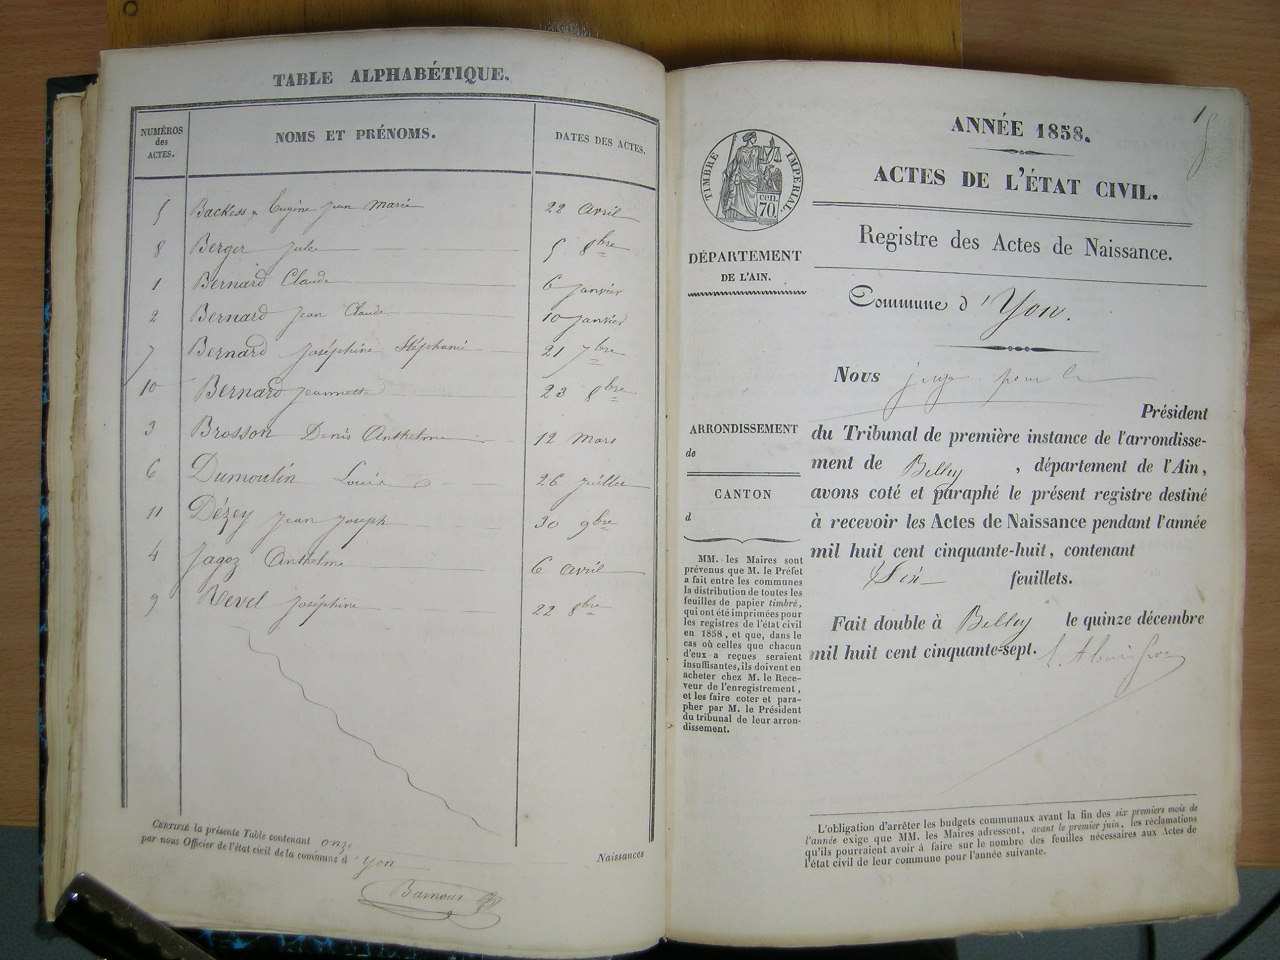 TABLE ALPHABÉTIQUE.
NUMÉROS des ACTES. NOMS ET PRÉNOMS. DATES DES ACTES.
5 Backess Eugène Jean Marie 22 avril
8 Berger Jules 5 8bre
1 Bernard Claude 6 janvier
2 Bernard Jean Claude 10 janvier
7 Bernard Joséphine Stéphanie 21 7bre
10 Bernard Jeannette 23 8bre
3 Brosson Denis Anthelme 12 mars
6 Dumoulin Louis 26 juillet
11 Dézey Jean Joseph 30 9bre
4 Jagoz Anthelme 6 avril
9 Revel Joséphine 22 8bre
CERTIFIÉ la présente Table contenant onze
par nous Officier de l'état civil de la commune d'Yon
Naissances
1
ANNÉE 1858.
ACTES DE L'ÉTAT CIVIL.
Registre des Actes de Naissance.
Commune d'Yon.
TIMBRE IMPÉRIAL.
cen. 70
DÉPARTEMENT
DE L'AIN.
ARRONDISSEMENT
de
CANTON
d
MM. les Maires sont
prévenus que M. le Préfet
a fait entre les communes
la distribution de toutes les
feuilles de papier timbré,
qui ont été imprimées pour
les registres de l'état civil
en 1858, et que, dans le
cas où celles que chacun
d'eux a reçues seraient
insuffisantes, ils doivent en
acheter chez M. le Rece-
veur de l'enregistrement,
et les faire coter et para-
pher par M. le Président
du tribunal de leur arron-
dissement.
Nous juge pour le
Président
du Tribunal de première instance de l'arrondisse-
ment de Belley, département de l'Ain,
avons coté et paraphé le présent registre destiné
à recevoir les Actes de Naissance pendant l'année
mil huit cent cinquante-huit, contenant
feuillets.
Fait double à Belley le quinze décembre
mil huit cent cinquante-sept.
L'obligation d'arrêter les budgets communaux avant la fin des six premiers mois de
l'année exige que MM. les Maires adressent, avant le premier juin, les réclamations
qu'ils pourraient avoir à faire sur le nombre des feuilles nécessaires aux Actes de
l'état civil de leur commune pour l'année suivante.